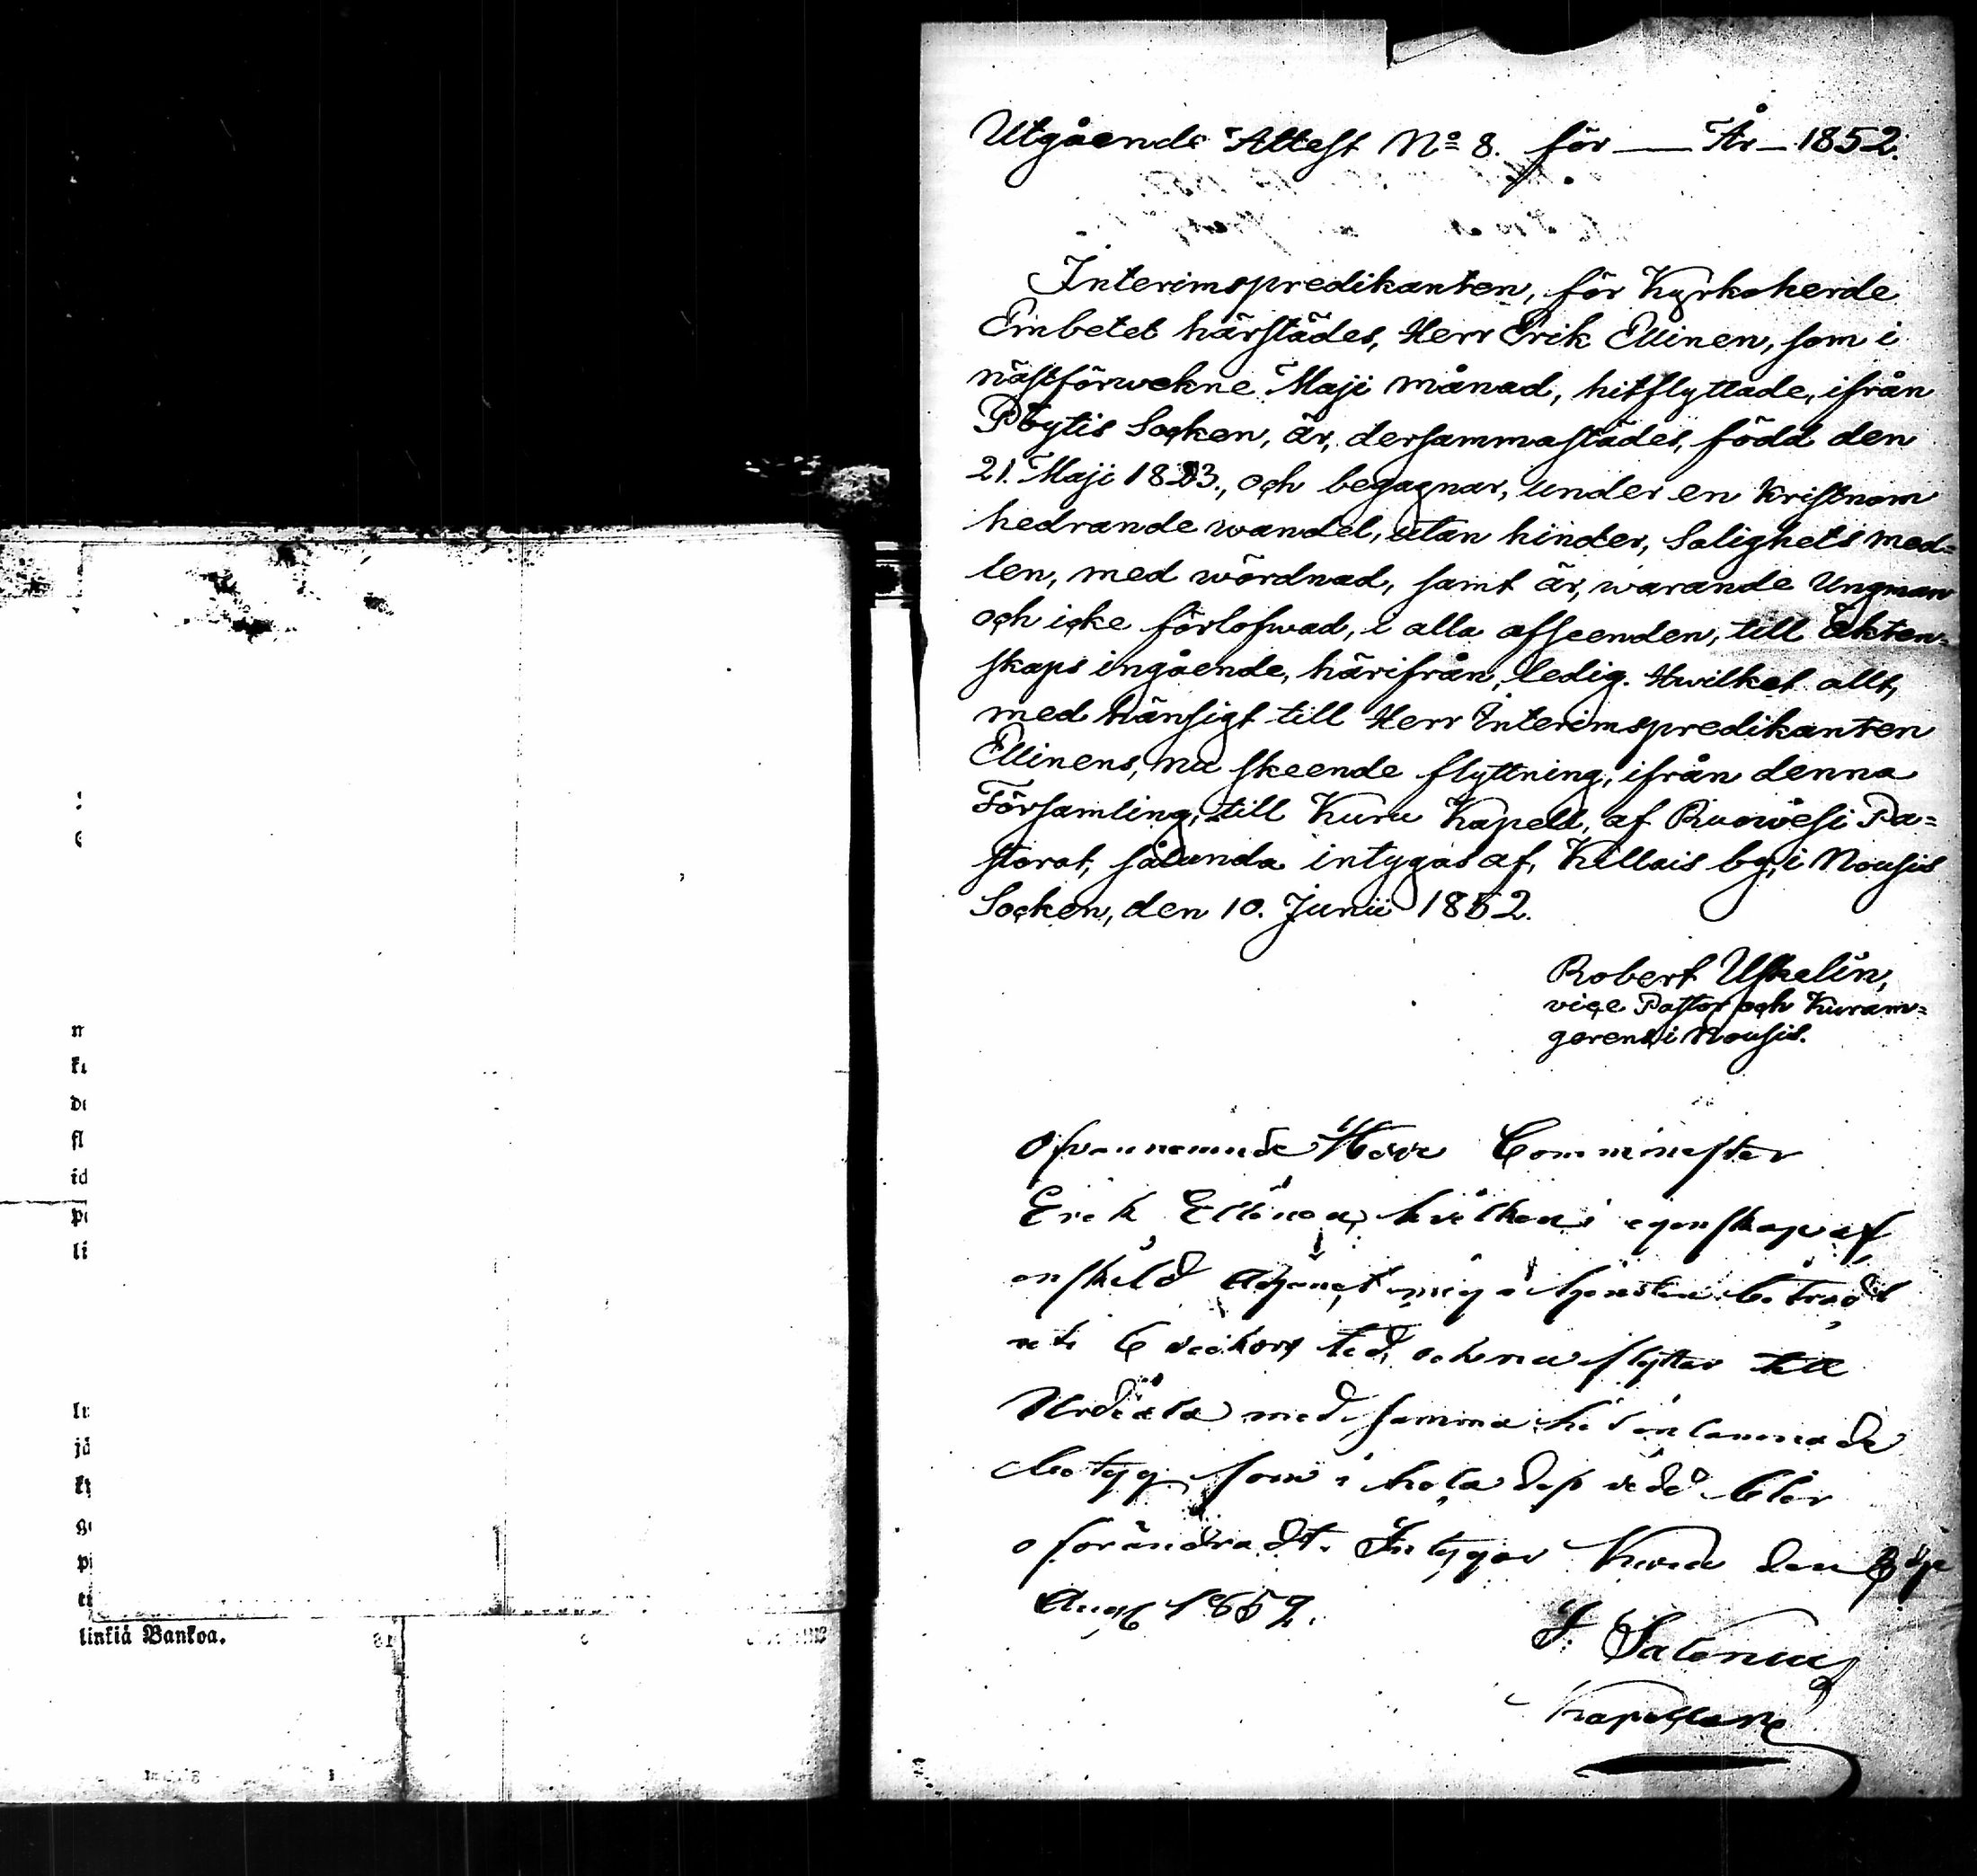 Utgående Attest No 8. för — År — 1852.
Interimspredikanten, för Kyrkoherde
Embetet härstädes, Herr Erik Ellinen, som i
nästförwekne Maji månad, hitflyttade, ifrån
Pöytis Socken, är, dersammastädes, född den
21. Maji 1823., och begagnar, under en kristnom
hedrande wandel, utan hinder, Salighets med=
len, med wördnad, samt är, warande Ungman
och icke förlofwad, i alla afseenden, till Äkten=
skaps ingående, härifrån, ledig. Hwilket allt,
med hänsigt till Herr Interimspredikanten
Ellinens, nu skeende flyttning, ifrån denna
Församling, till Kuru Kapell, af Ruowesi Pa=
storat, sålunda intygas af, Killais by, i Nousis
Socken, den 10. Junii 1852.
Robert Uskelin,
vice Pastor och Kuram=
gerens i Nousis.
Ofvannemnde Herr Comminister
Erik Ellinen, hvilken i egenskap af
enskild Adjunct mig i tjensten biträdt
uti 6 veckors tid, och nu flyttar till
Urdiala med samma hit inlämnade
betyg, som i hela dess vidd blir
oförändradt. Intygar Kuru den
Aug 1852.
Salonius
Kapellan
m
ka
de
fl
id
pe
li
jä
ky
ge
pi
linkiä Bankoa.